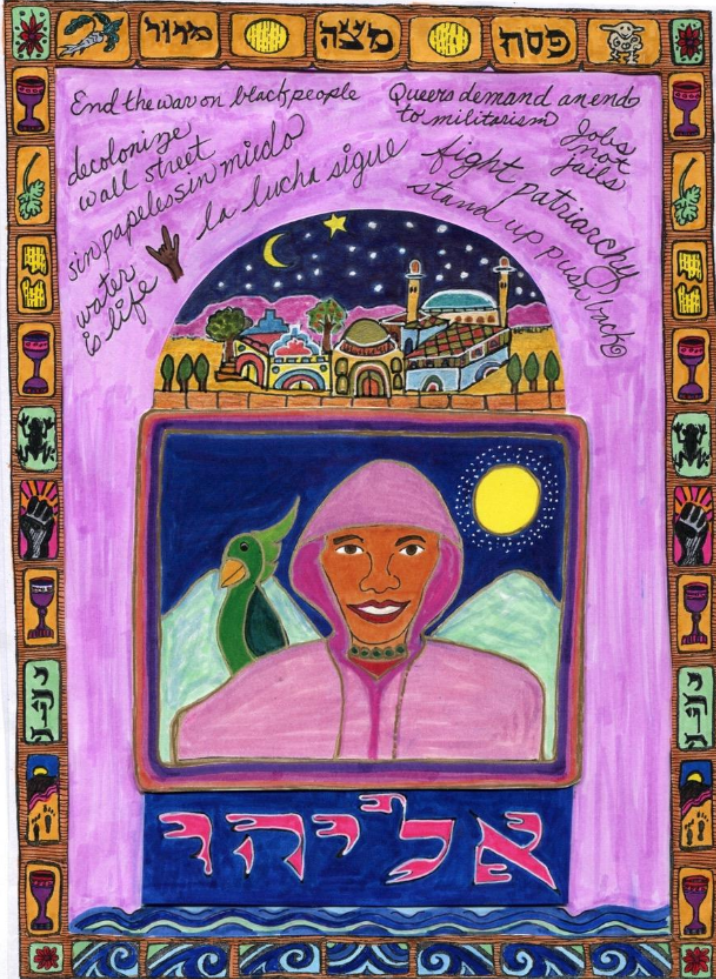 פסח מצה מרור
End the war on black people
Queers demand an end
to militarism
Jobs
not
jails
decolonize
wall street
sin papeles sin miedo
la lucha sigue
fight patriarchy
stand up push back
water
is life
אליהו